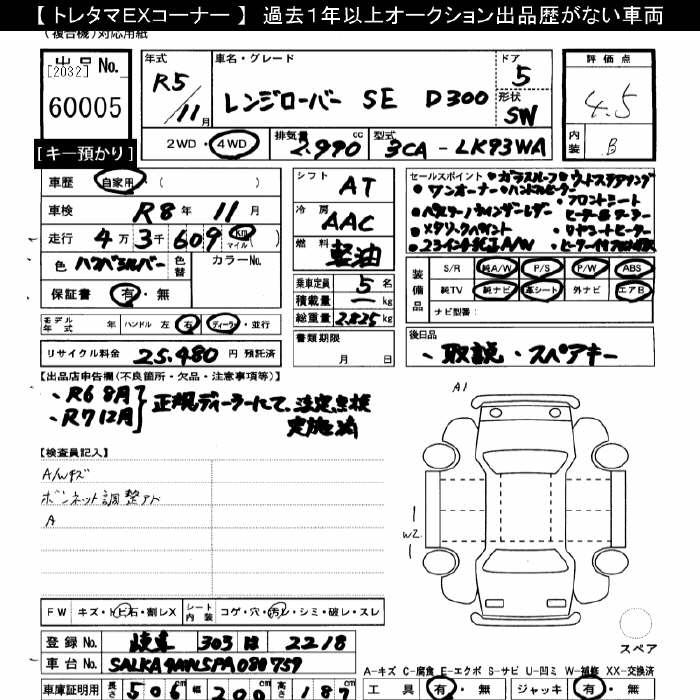 【 トレタマEXコーナー 】 過去１年以上オークション出品歴がない車両
(複合機)対応用紙
出品 No.
[2032]
60005
[キー預かり]
年式 R5/11月
車名・グレード
レンジローバー SE D300
ドア 5
形状 SW
評価点 4.5
内装 B
2WD・4WD
排気量 2,990 cc
型式 3CA - LK93WA
車歴 自家用・( )
車検 R8年 11月
走行 4万 3千 609 km マイル
色 ハクバシルバー 色替 カラーNo.
保証書 有・無
シフト AT
冷房 AAC
燃料 軽油
乗車定員 5 名
積載量 ー kg
総重量 2,825 kg
書類期限 月 日
セールスポイント ・ガラスルーフ
・ワンオーナー
・メタリックペイント ・リヤシートヒーター
・23インチ純正A/W
装備品 S/R 純A/W P/S P/W ABS
純TV 純ナビ 革シート 外ナビ エアB
ナビ型番:
モデル年式 年 ハンドル 左 右 ディーラー・並行
リサイクル料金 25,480 円 預託済
後日品
・取説 ・スペアキー
【出品店申告欄(不良箇所・欠品・注意事項等)】
・R6 8月
・R7 12月
正規ディーラーにて、法定点検
実施済
【検査員記入】
A/Wキズ
ボンネット調整アト
A
A1
W2
FW キズ・トビ石・割レX シート内装 コゲ・穴・汚レ・シミ・破レ・スレ
登録 No. 岐阜 303 は 2218
車台 No. SALKA9AN5PA080759
スペア
A-キズ C-腐食 E-エクボ S-サビ U-凹ミ W-補修 XX-交換済
車庫証明用 長さ 506 cm 幅 200 cm 高さ 187 cm
工具 有・無 ジャッキ 有・無